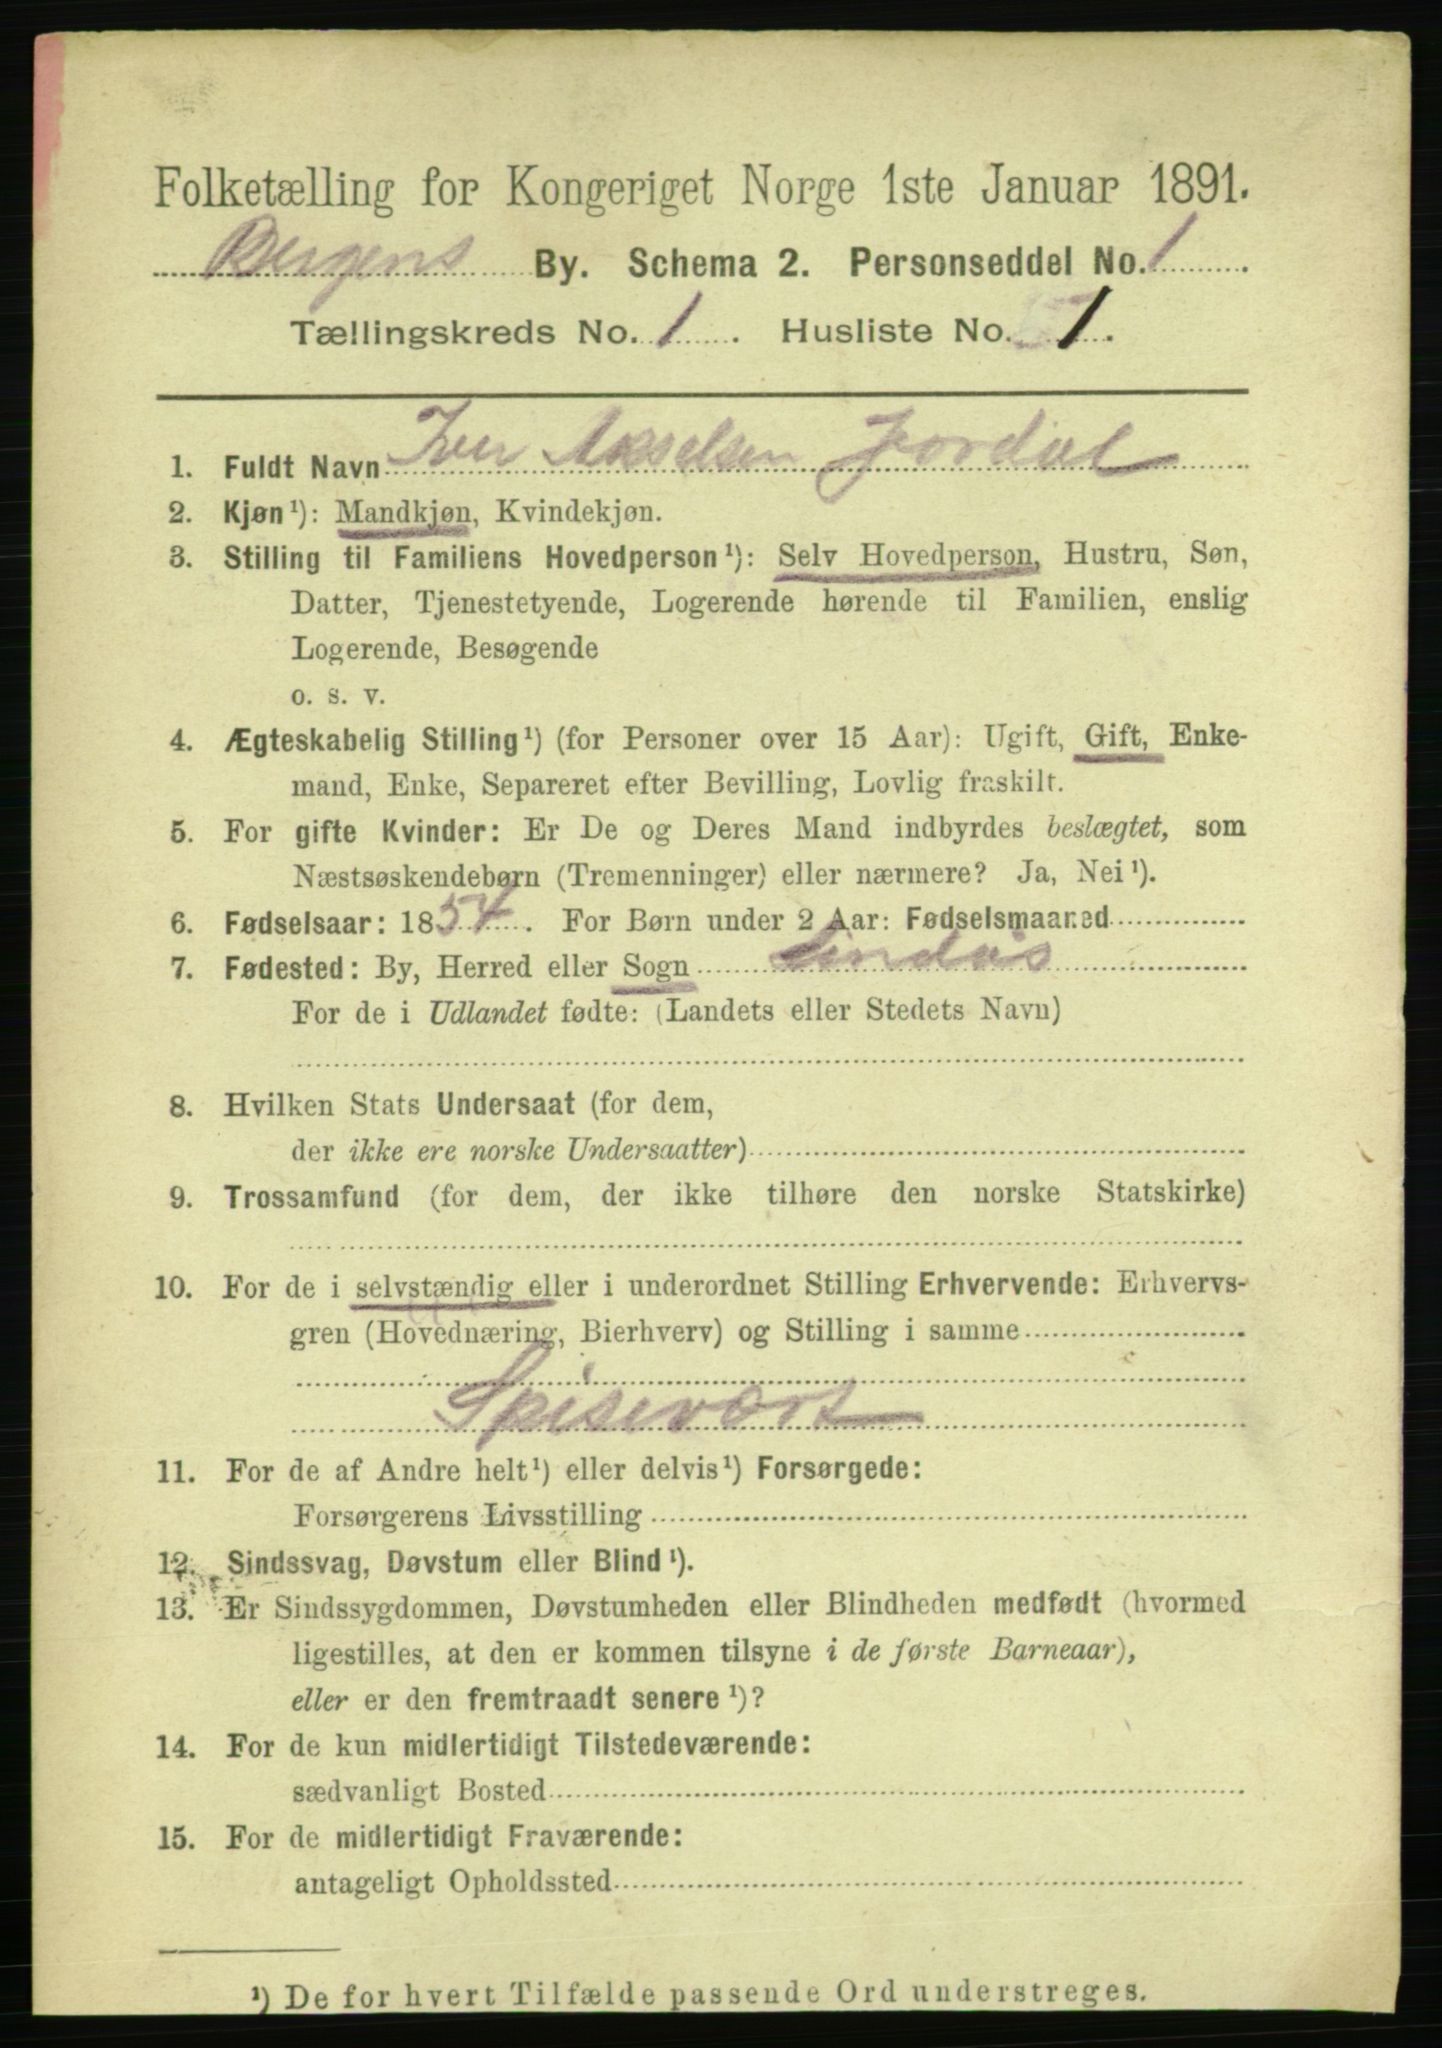 Folketælling for Kongeriget Norge 1ste Januar 1891.
Bergens By. Schema 2. Personseddel No. 1.
Tællingskreds No. 1. Husliste No. 1.
1. Fuldt Navn Iver Akselsen Jordal
2. Kjøn¹): Mandkjøn, Kvindekjøn.
3. Stilling til Familiens Hovedperson¹): Selv Hovedperson, Hustru, Søn,
Datter, Tjenestetyende, Logerende hørende til Familien, enslig
Logerende, Besøgende
o. s. v.
4. Ægteskabelig Stilling¹) (for Personer over 15 Aar): Ugift, Gift, Enke-
mand, Enke, Separeret efter Bevilling, Lovlig fraskilt.
5. For gifte Kvinder: Er De og Deres Mand indbyrdes beslægtet, som
Næstsøskendebørn (Tremenninger) eller nærmere? Ja, Nei¹).
6. Fødselsaar: 1854. For Børn under 2 Aar: Fødselsmaaned
7. Fødested: By, Herred eller Sogn Lindås
For de i Udlandet fødte: (Landets eller Stedets Navn)
8. Hvilken Stats Undersaat (for dem,
der ikke ere norske Undersaatter)
9. Trossamfund (for dem, der ikke tilhøre den norske Statskirke)
10. For de i selvstændig eller i underordnet Stilling Erhvervende: Erhvervs-
gren (Hovednæring, Bierhverv) og Stilling i samme
Spisevært
11. For de af Andre helt¹) eller delvis¹) Forsørgede:
Forsørgerens Livsstilling
12. Sindssvag, Døvstum eller Blind¹).
13. Er Sindssygdommen, Døvstumheden eller Blindheden medfødt (hvormed
ligestilles, at den er kommen tilsyne i de første Barneaar),
eller er den fremtraadt senere¹)?
14. For de kun midlertidigt Tilstedeværende:
sædvanligt Bosted
15. For de midlertidigt Fraværende:
antageligt Opholdssted
¹) De for hvert Tilfælde passende Ord understreges.